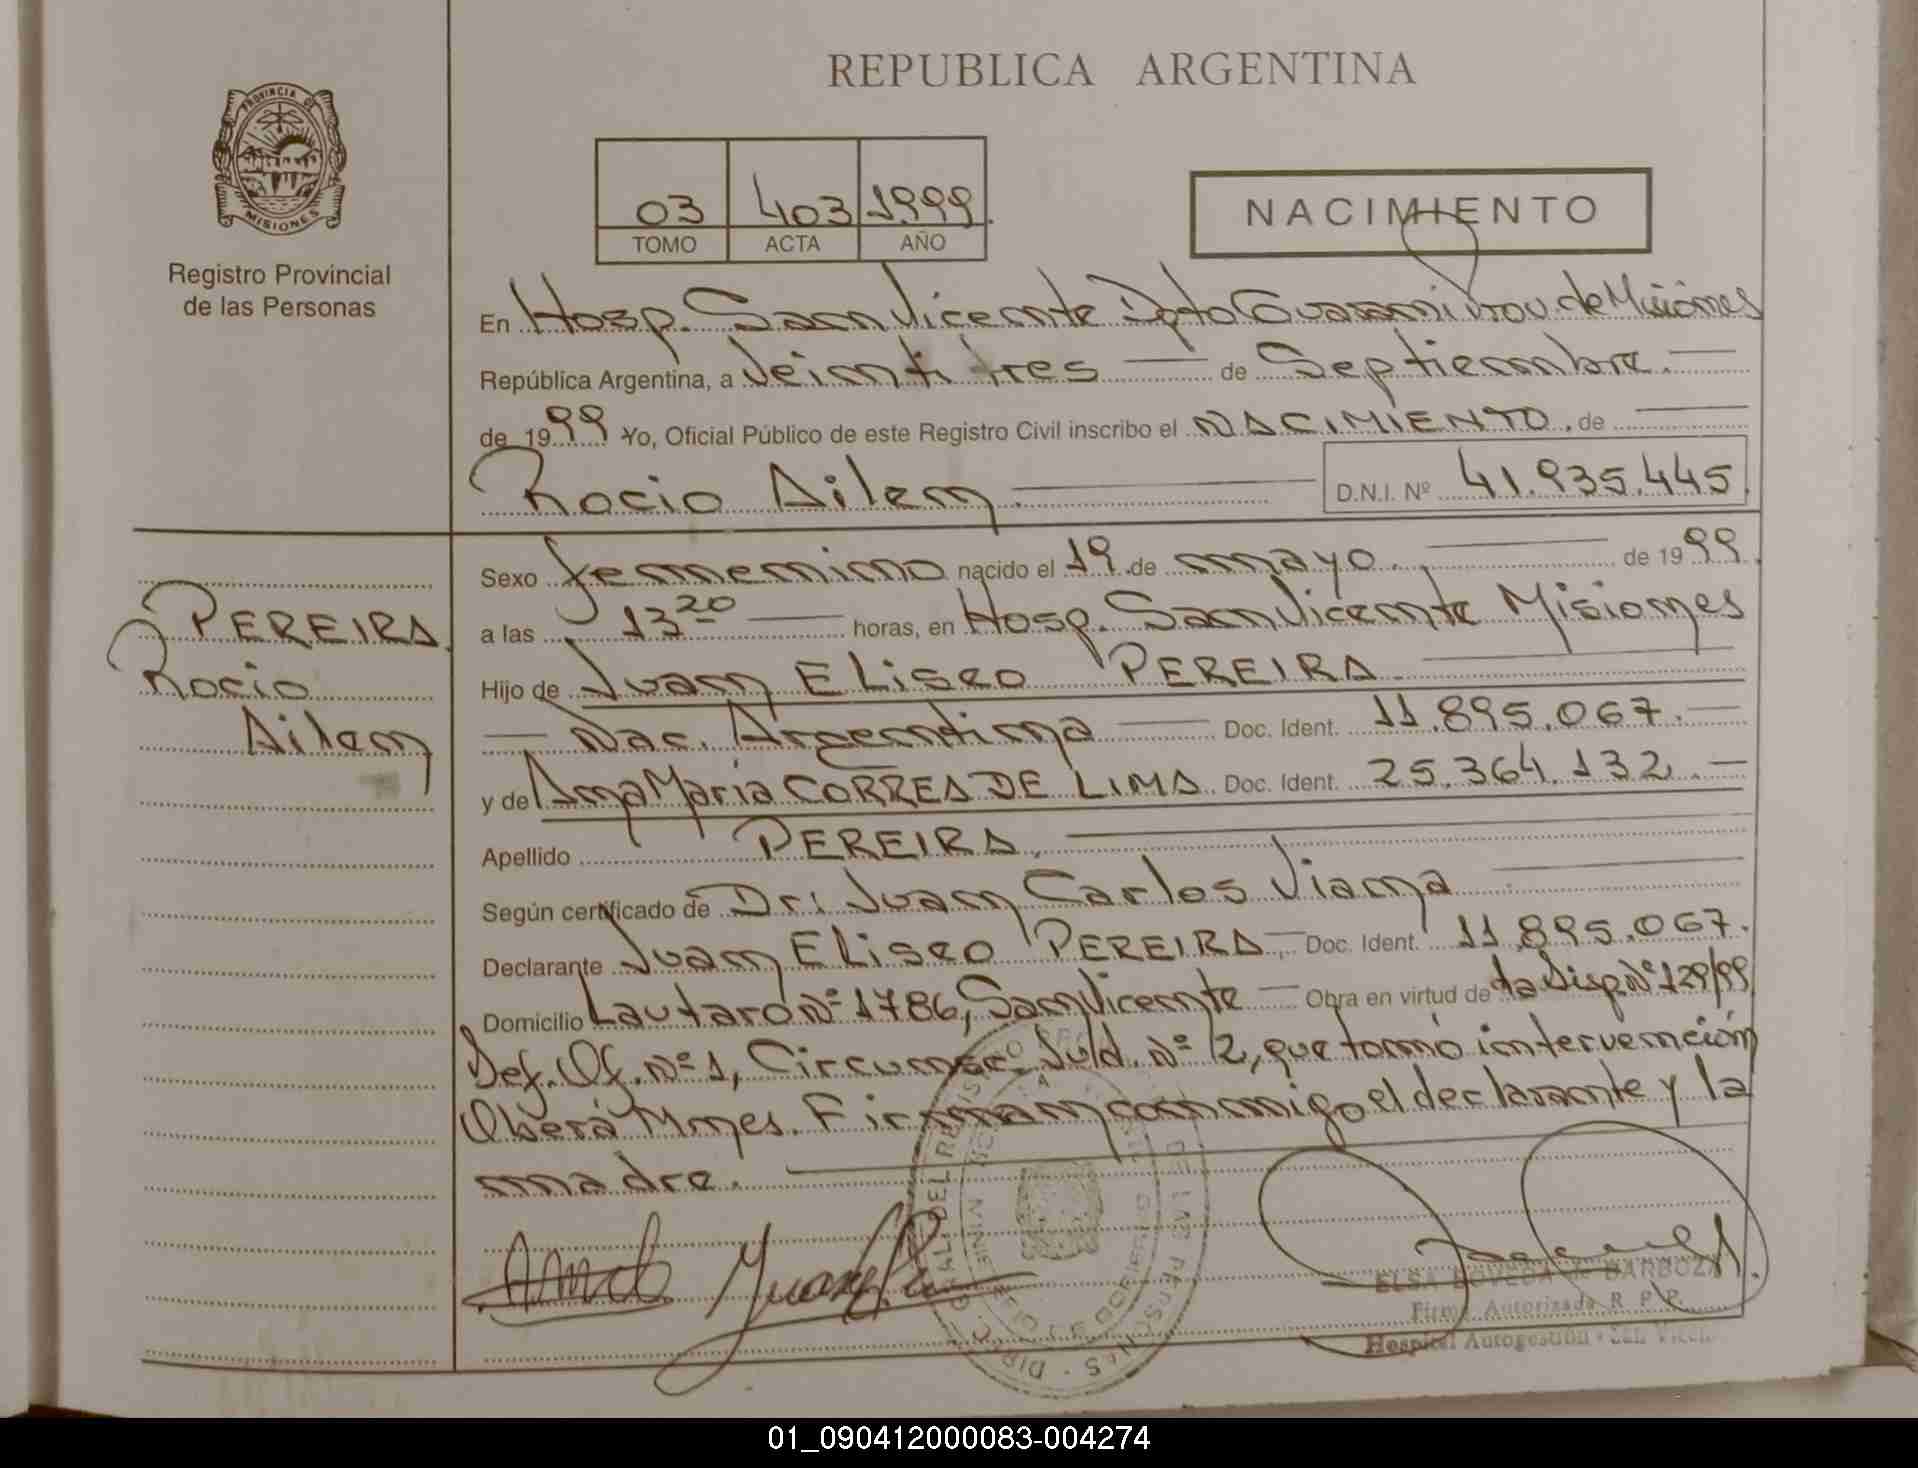 REPUBLICA ARGENTINA
PROVINCIA DE
MISIONES
Registro Provincial
de las Personas
03 403 1999.
TOMO ACTA AÑO
NACIMIENTO
En Hosp. San Vicente Dpto Guaraní Prov. de Misiones
República Argentina, a Veinti tres de Septiembre.
de 1999 Yo, Oficial Público de este Registro Civil inscribo el NACIMIENTO. de
Rocio Ailen. D.N.I. Nº 41.935.445.
Sexo femenino nacido el 19 de mayo. de 1999.
PEREIRA.
Rocio
Ailen
a las 13 20 horas, en Hosp. San Vicente Misiones
Hijo de Juan ELiseo PEREIRA.
Nac. Argentina Doc. Ident. 11.895.067.
y de Ana Maria CORREA DE LIMA. Doc. Ident. 25.364.132.
Apellido PEREIRA.
Según certificado de Dr: Juan Carlos Viana
Declarante Juan ELiseo PEREIRA, Doc. Ident. 11.895.067.
Domicilio Lautaro Nº 1786, San Vicente Obra en virtud de la Disp. Nº 129/99
Def. Of. Nº 1, Circunsc. Jud. Nº 2, que tomó intervención
Oberá Mnes. Firman conmigo el declarante y la
madre.
ELSA BOVEDA de BARBOZA
Firma Autorizada R. P. P.
Hospital Autogestión - San Vicen
01_090412000083-004274